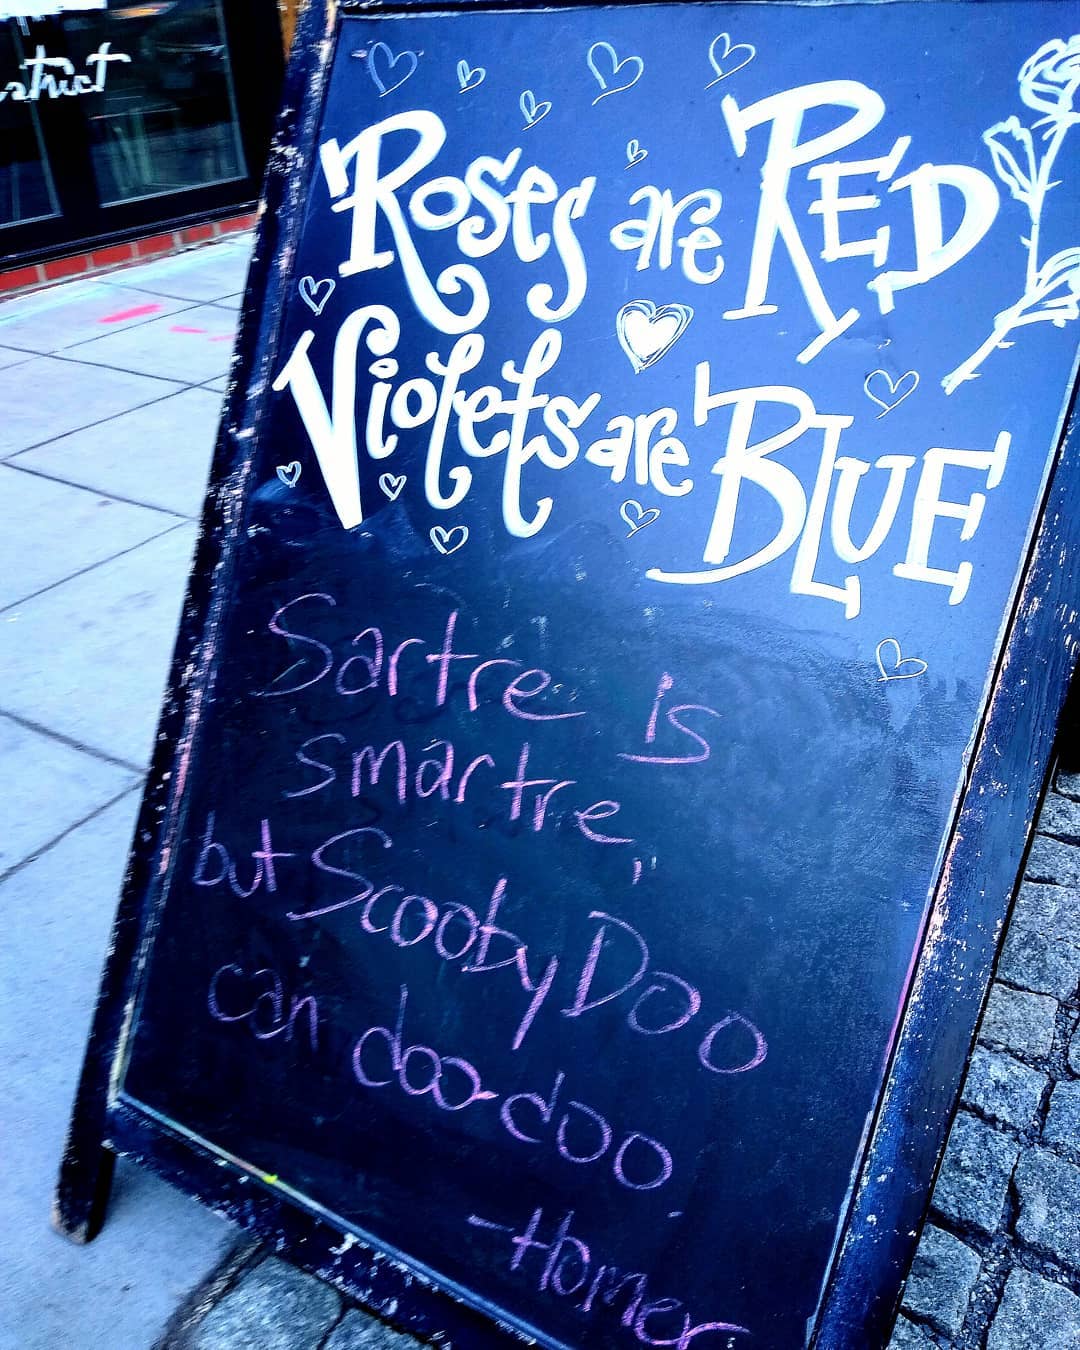 strict
Roses are RED
Violets are BLUE
Sartre is
smartre,
but Scooby Doo
can doo-doo.
-Homer